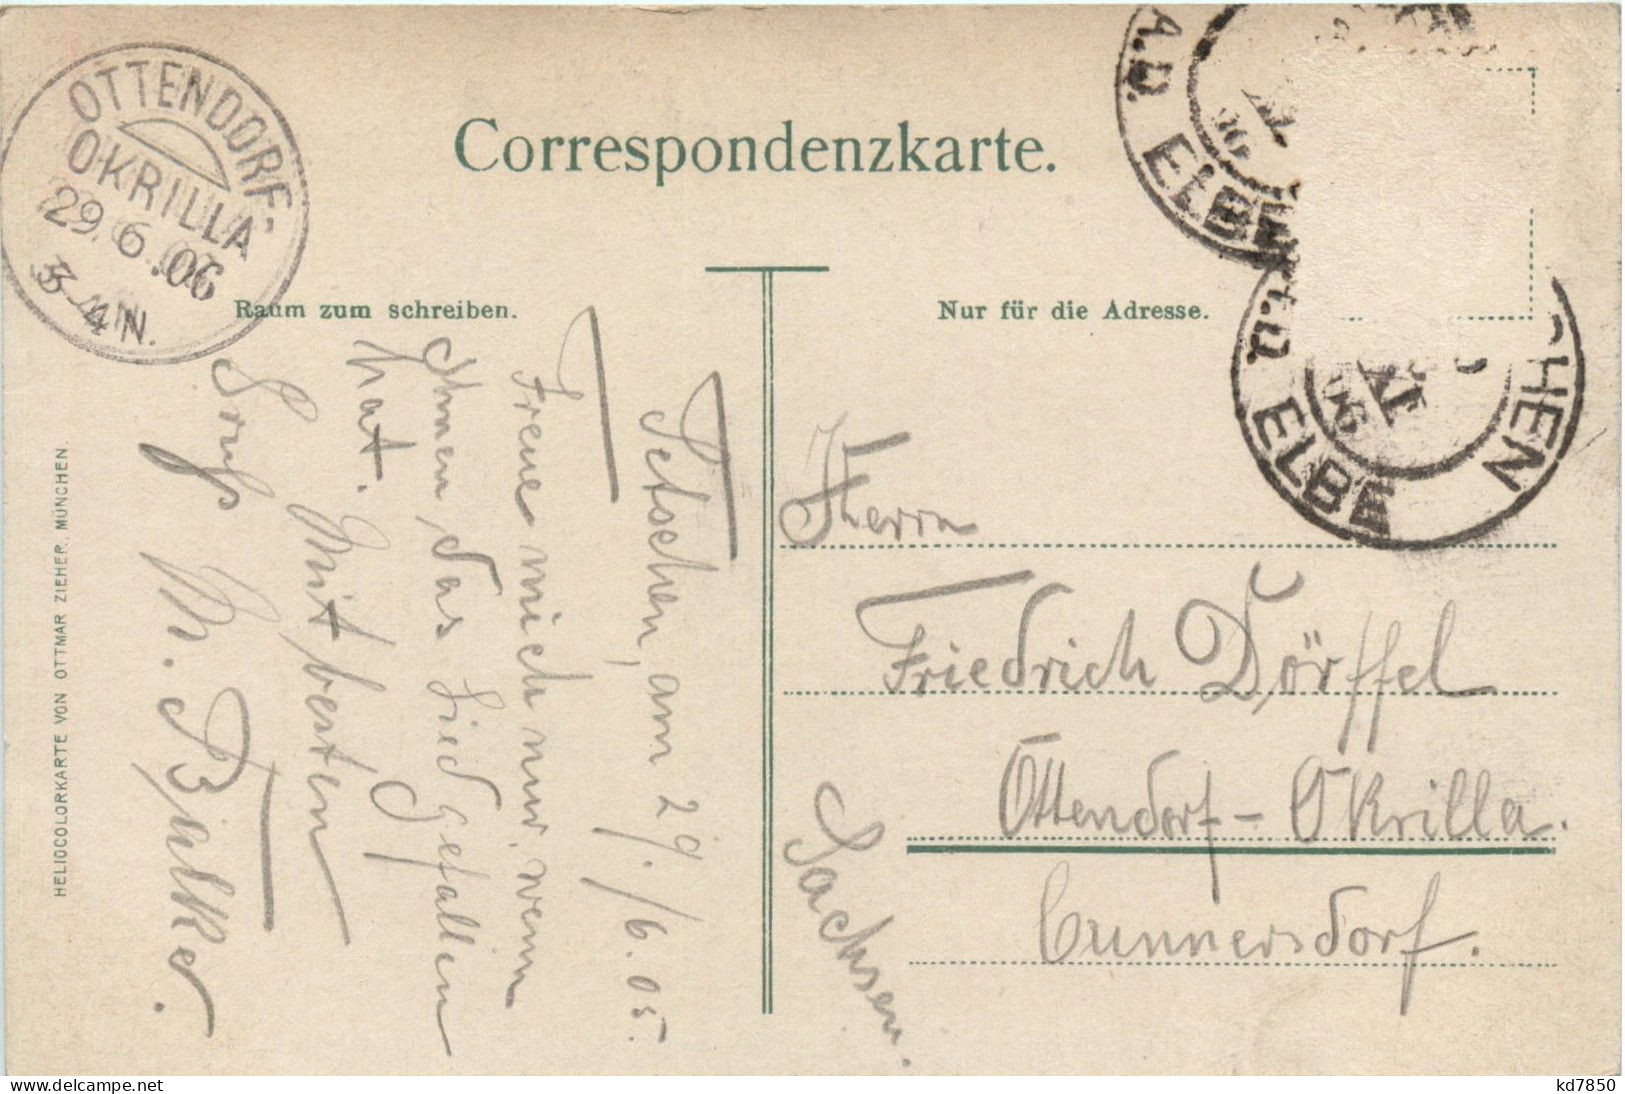 Correspondenzkarte.
Raum zum schreiben.
Nur für die Adresse.
OTTENDORF-
OKRILLA
29.6.06
3-4 N.
A.D. ELBE
CHEN
A.D. ELBE
Tetschen, am 29./6. 05.
Freue mich nur, wenn
Ihnen das Lied gefallen
hat.
Mit besten
Gruß
M. Bialker.
Herrn
Friedrich Dörffel
Ottendorf-Okrilla.
Cunnersdorf.
Sachsen.
HELIOCOLORKARTE VON OTTMAR ZIEHER, MÜNCHEN.
kd7850